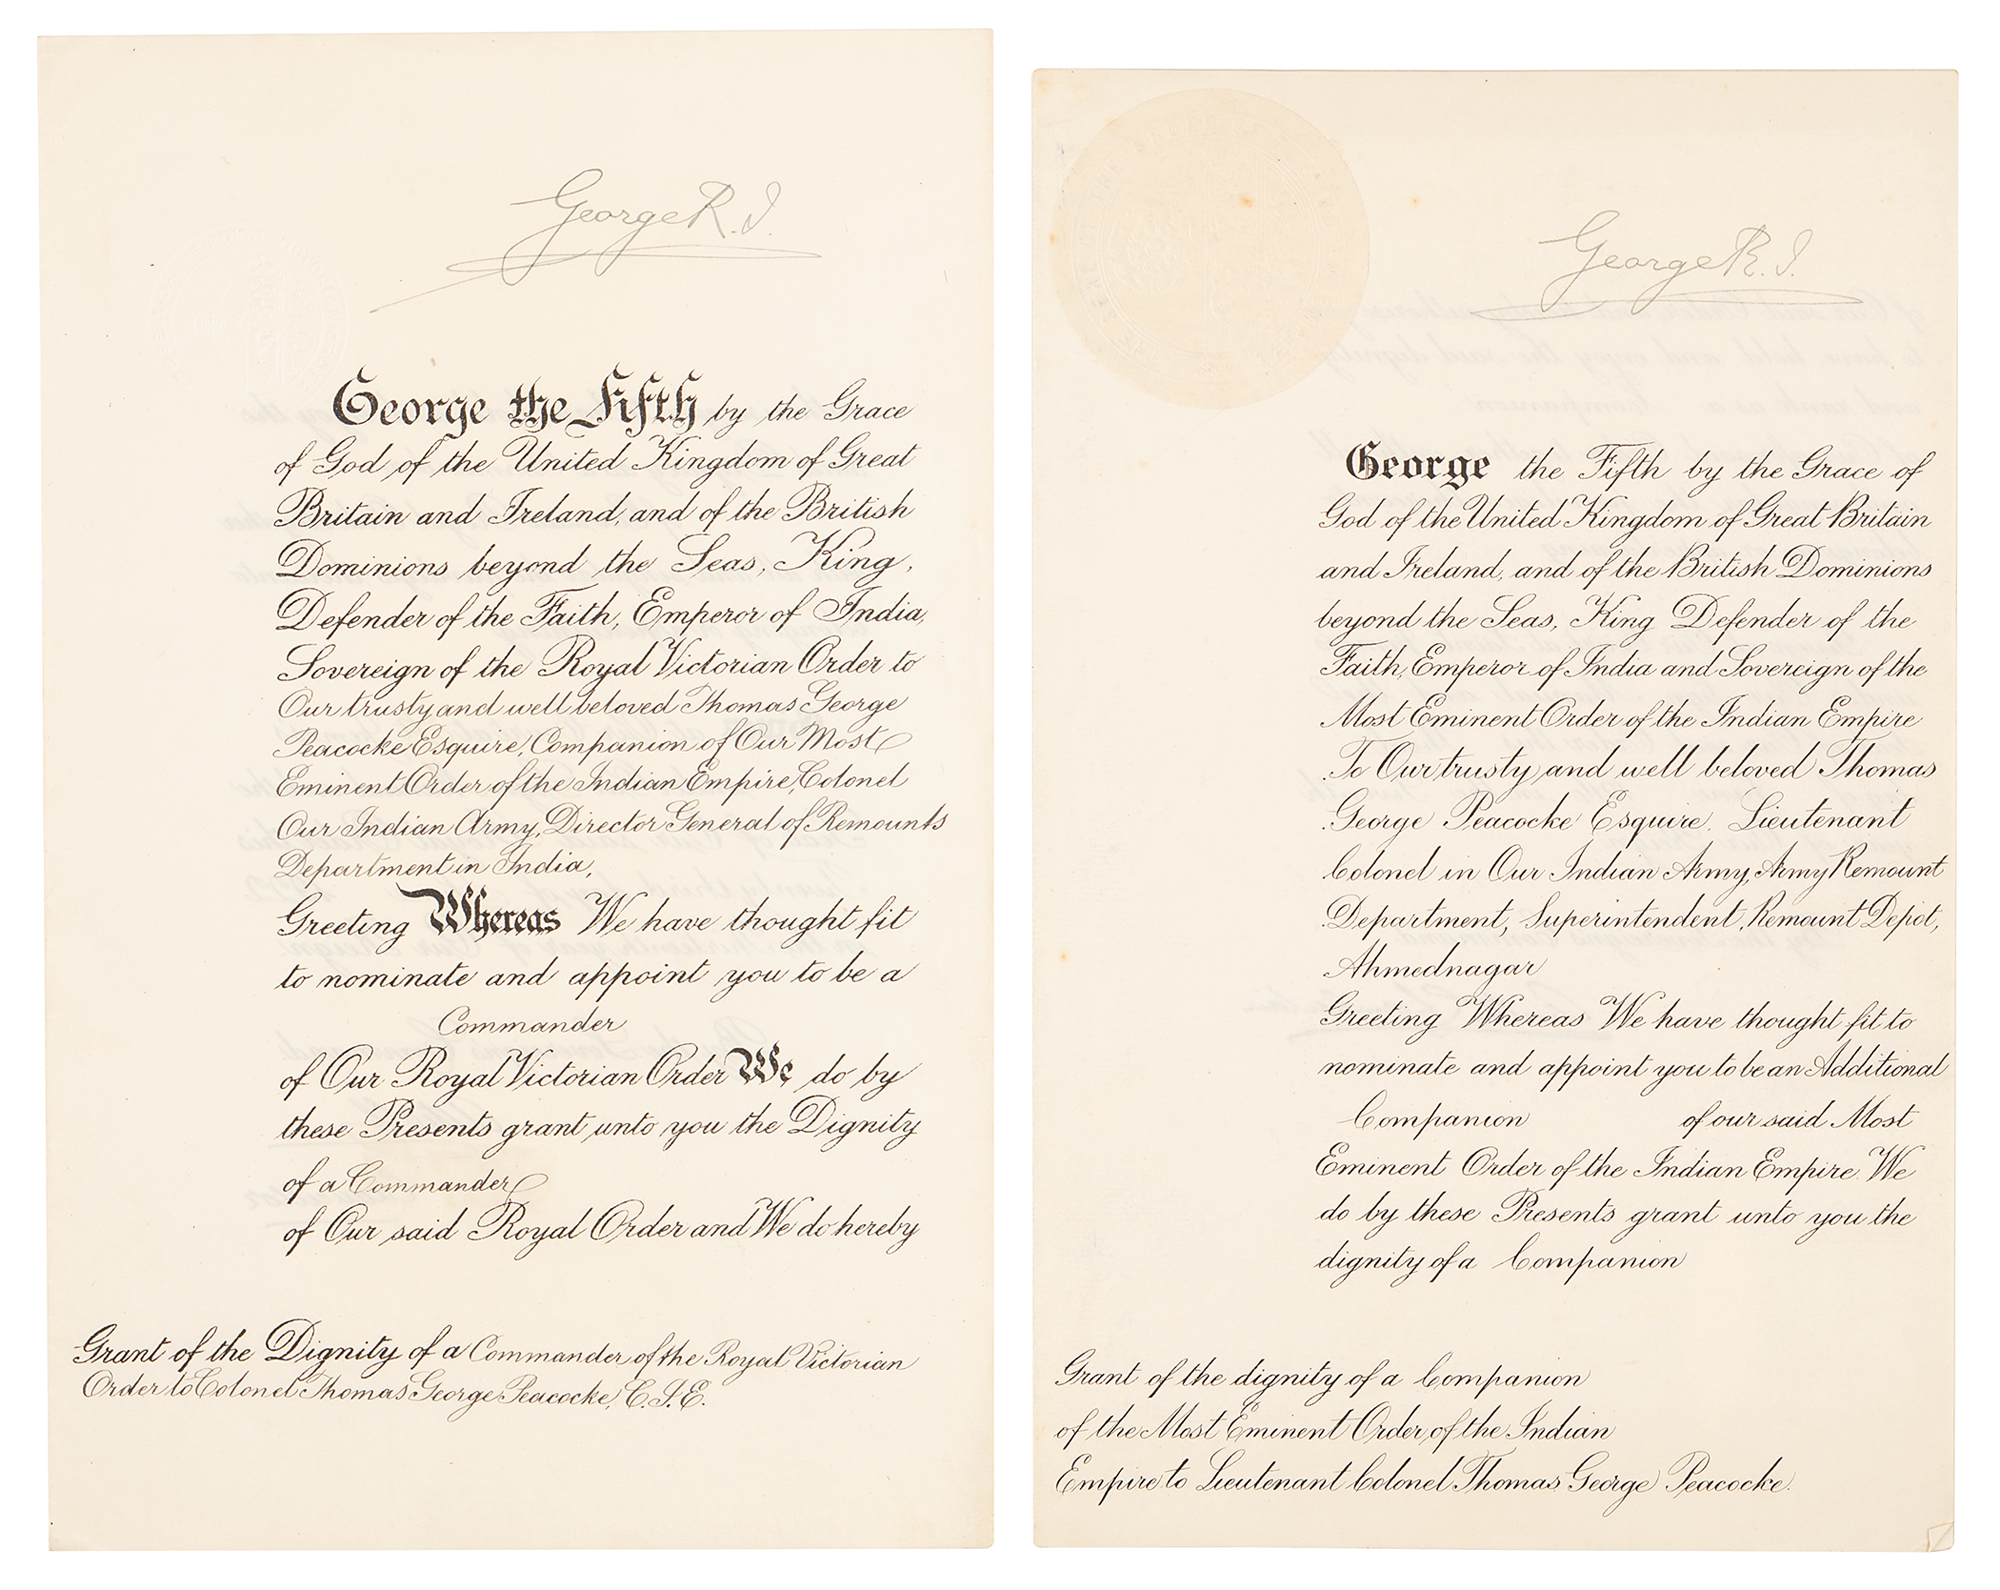 George R.I.
George the Fifth by the Grace
of God of the United Kingdom of Great
Britain and Ireland, and of the British
Dominions beyond the Seas, King,
Defender of the Faith, Emperor of India,
Sovereign of the Royal Victorian Order to
Our trusty and well beloved Thomas George
Peacocke Esquire, Companion of Our Most
Eminent Order of the Indian Empire, Colonel
Our Indian Army, Director General of Remounts
Department in India,
Greeting Whereas We have thought fit
to nominate and appoint you to be a
Commander
of Our Royal Victorian Order We do by
these Presents grant unto you the Dignity
of a Commander
of Our said Royal Order and We do hereby
Grant of the Dignity of a Commander of the Royal Victorian
Order to Colonel Thomas George Peacocke, C.I.E.
George R.I.
George the Fifth by the Grace of
God of the United Kingdom of Great Britain
and Ireland, and of the British Dominions
beyond the Seas, King Defender of the
Faith, Emperor of India and Sovereign of the
Most Eminent Order of the Indian Empire
To Our trusty and well beloved Thomas
George Peacocke Esquire. Lieutenant
Colonel in Our Indian Army, Army Remount
Department, Superintendent, Remount Depôt,
Ahmednagar
Greeting Whereas We have thought fit to
nominate and appoint you to be an Additional
Companion of our said Most
Eminent Order of the Indian Empire We
do by these Presents grant unto you the
dignity of a Companion
Grant of the dignity of a Companion
of the Most Eminent Order of the Indian
Empire to Lieutenant Colonel Thomas George Peacocke.